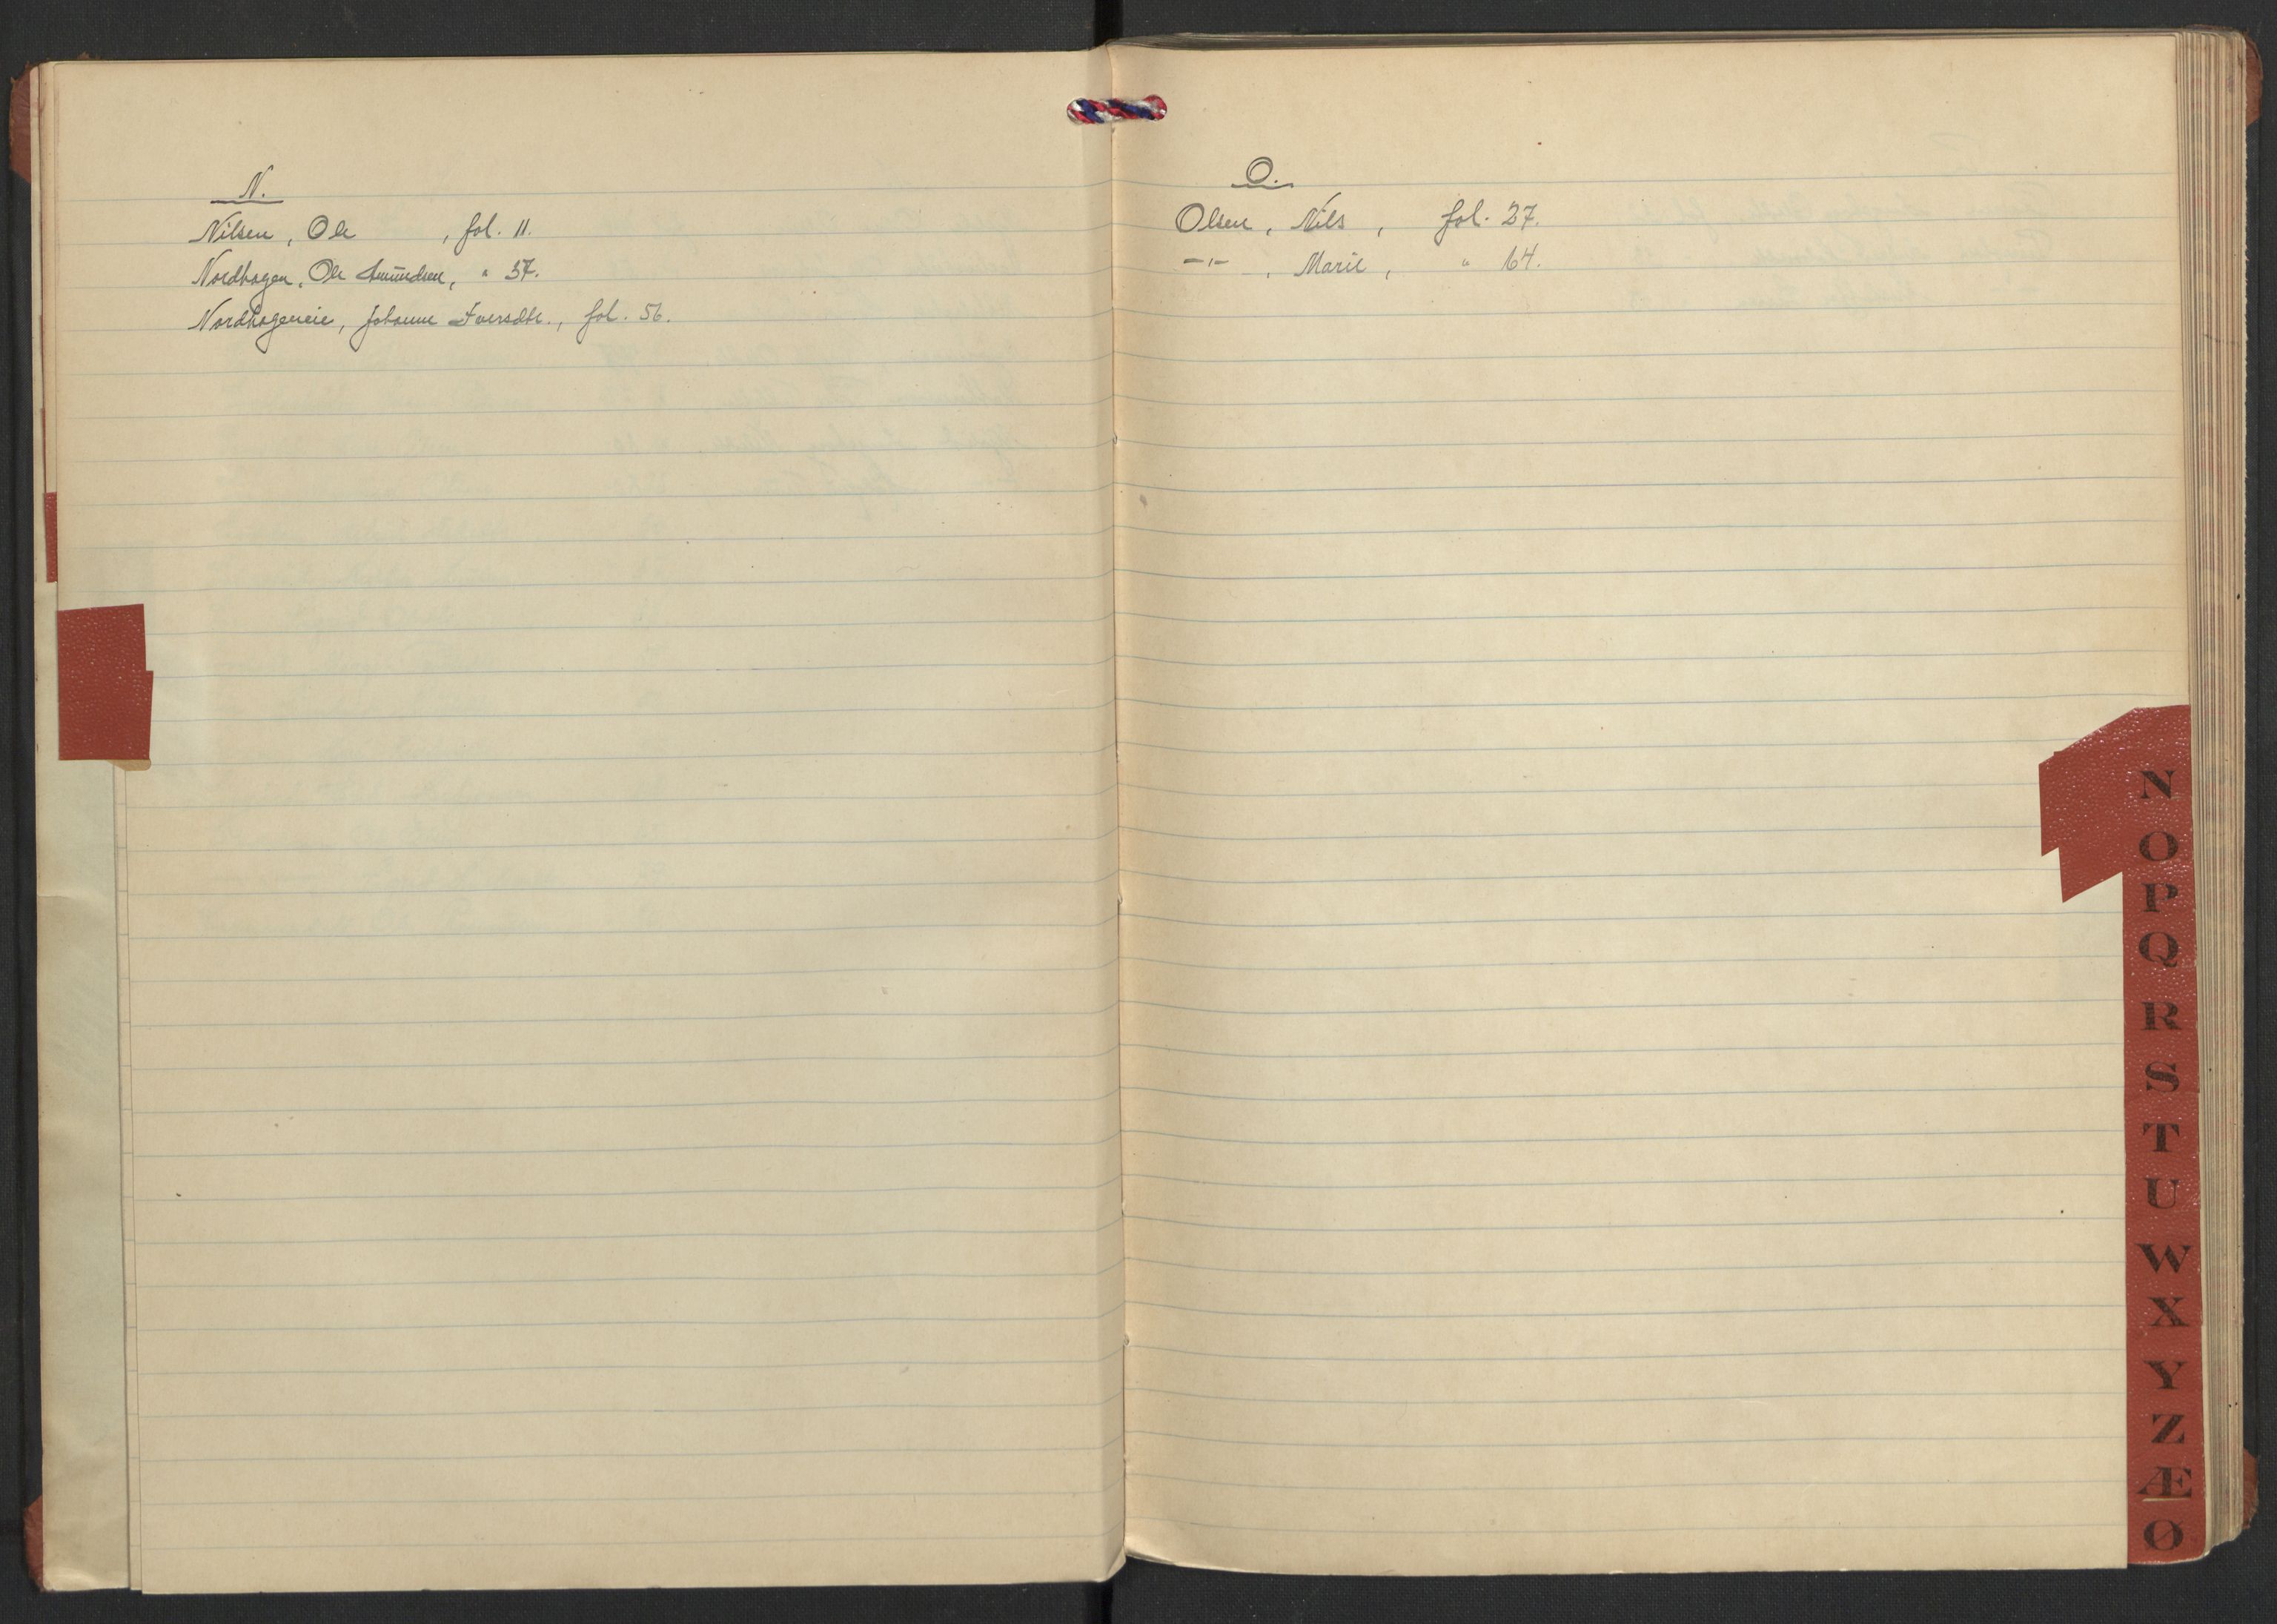 N.
Nilsen, Ole , fol. 11.
Nordhagen, Ole Amundsen, " 37.
Nordhageneie, Johanne Iversdtr., fol. 56.
O.
Olsen, Nils, fol. 27.
-"- , Marie, " 64.
N
O
P
Q
R
S
T
U
W
X
Y
Z
Æ
Ø